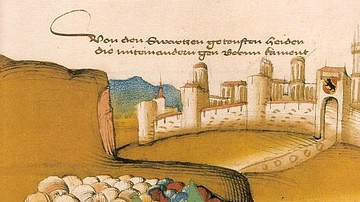 Von den Swartzen getouften heiden
die miteinandern gen Bernn kament